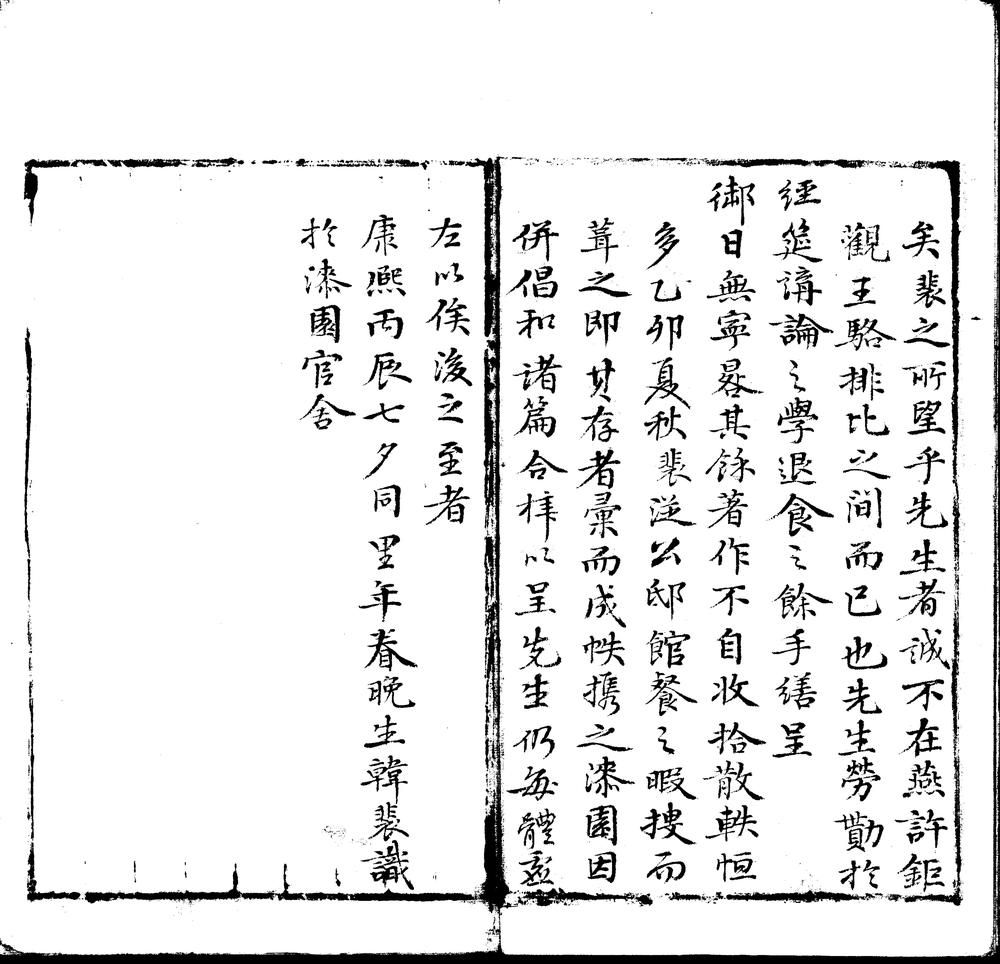 矣裴之所望乎先生者誠不在燕許鉅
觀王駱排比之間而已也先生勞勩於
經筵講論之學退食之餘手繕呈
御日無寧晷其餘著作不自收拾散軼恒
多乙卯夏秋裴從公邸館餐之暇摟而
葺之即其存者彙而成帙攜之漆園因
併倡和諸篇合梓以呈先生仍每體虛
左以俟後之至者
康熙丙辰七夕同里年眷晚生韓裴識
於漆園官舍